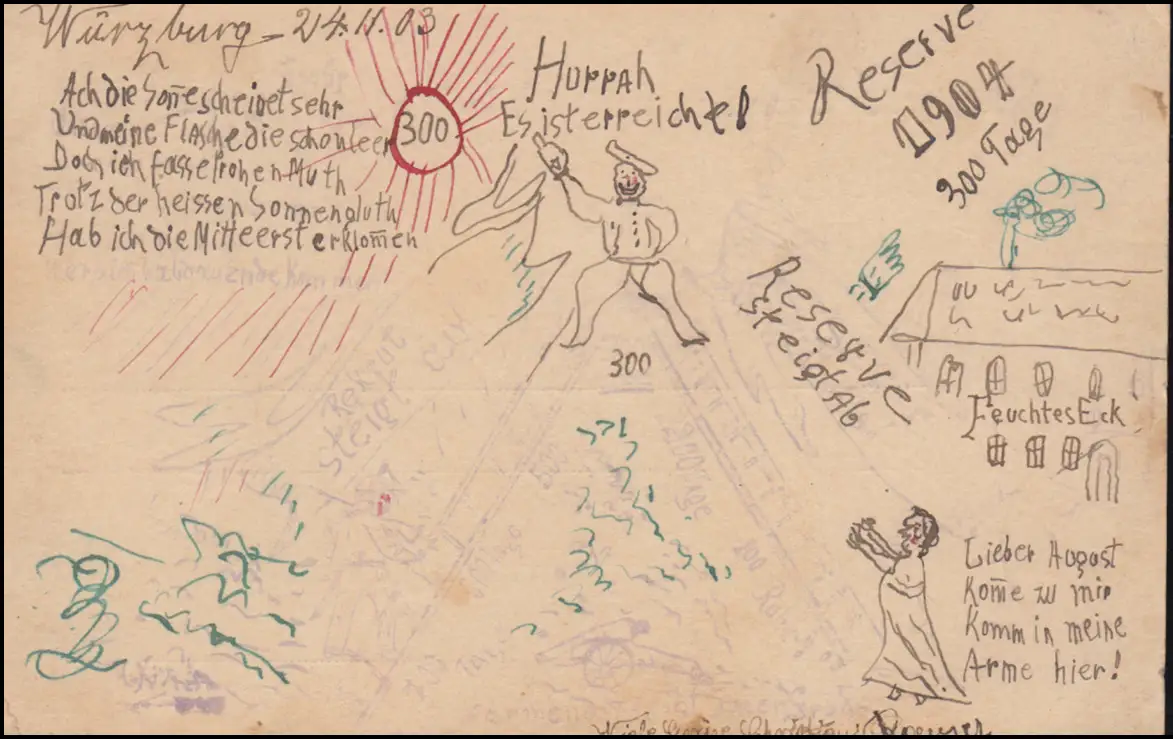 Würzburg - 24.11.03
Ach die Son̄e scheinet sehr
Und meine Flasche die schon leer
Doch ich fasse frohen Muth
Trotz der heissen Sonnengluth
Hab ich die Mitte erst erklom̄en
300
Hurrah
Es ist erreicht!
Reserve
1904
300 Tage
300
Reserve
steigt Ab
Feuchtes Eck
Lieber August
Kom̄e zu mir
Komm in meine
Arme hier!
Viele